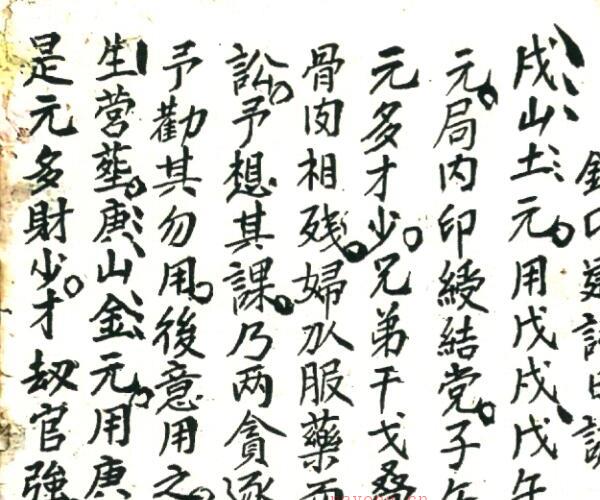 戌山土元用戊戌戊午
元局内印綬結党子午
元多才少兄弟干戈
骨肉相残婦以服藥而
訟予想其課乃两貪逐
予勸其勿用後意用之
生营塟庚山金元用庚
是元多財少才刼官強